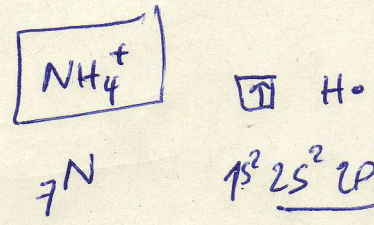 NH₄⁺
↑ H•
₇N 1s² 2s² 2p